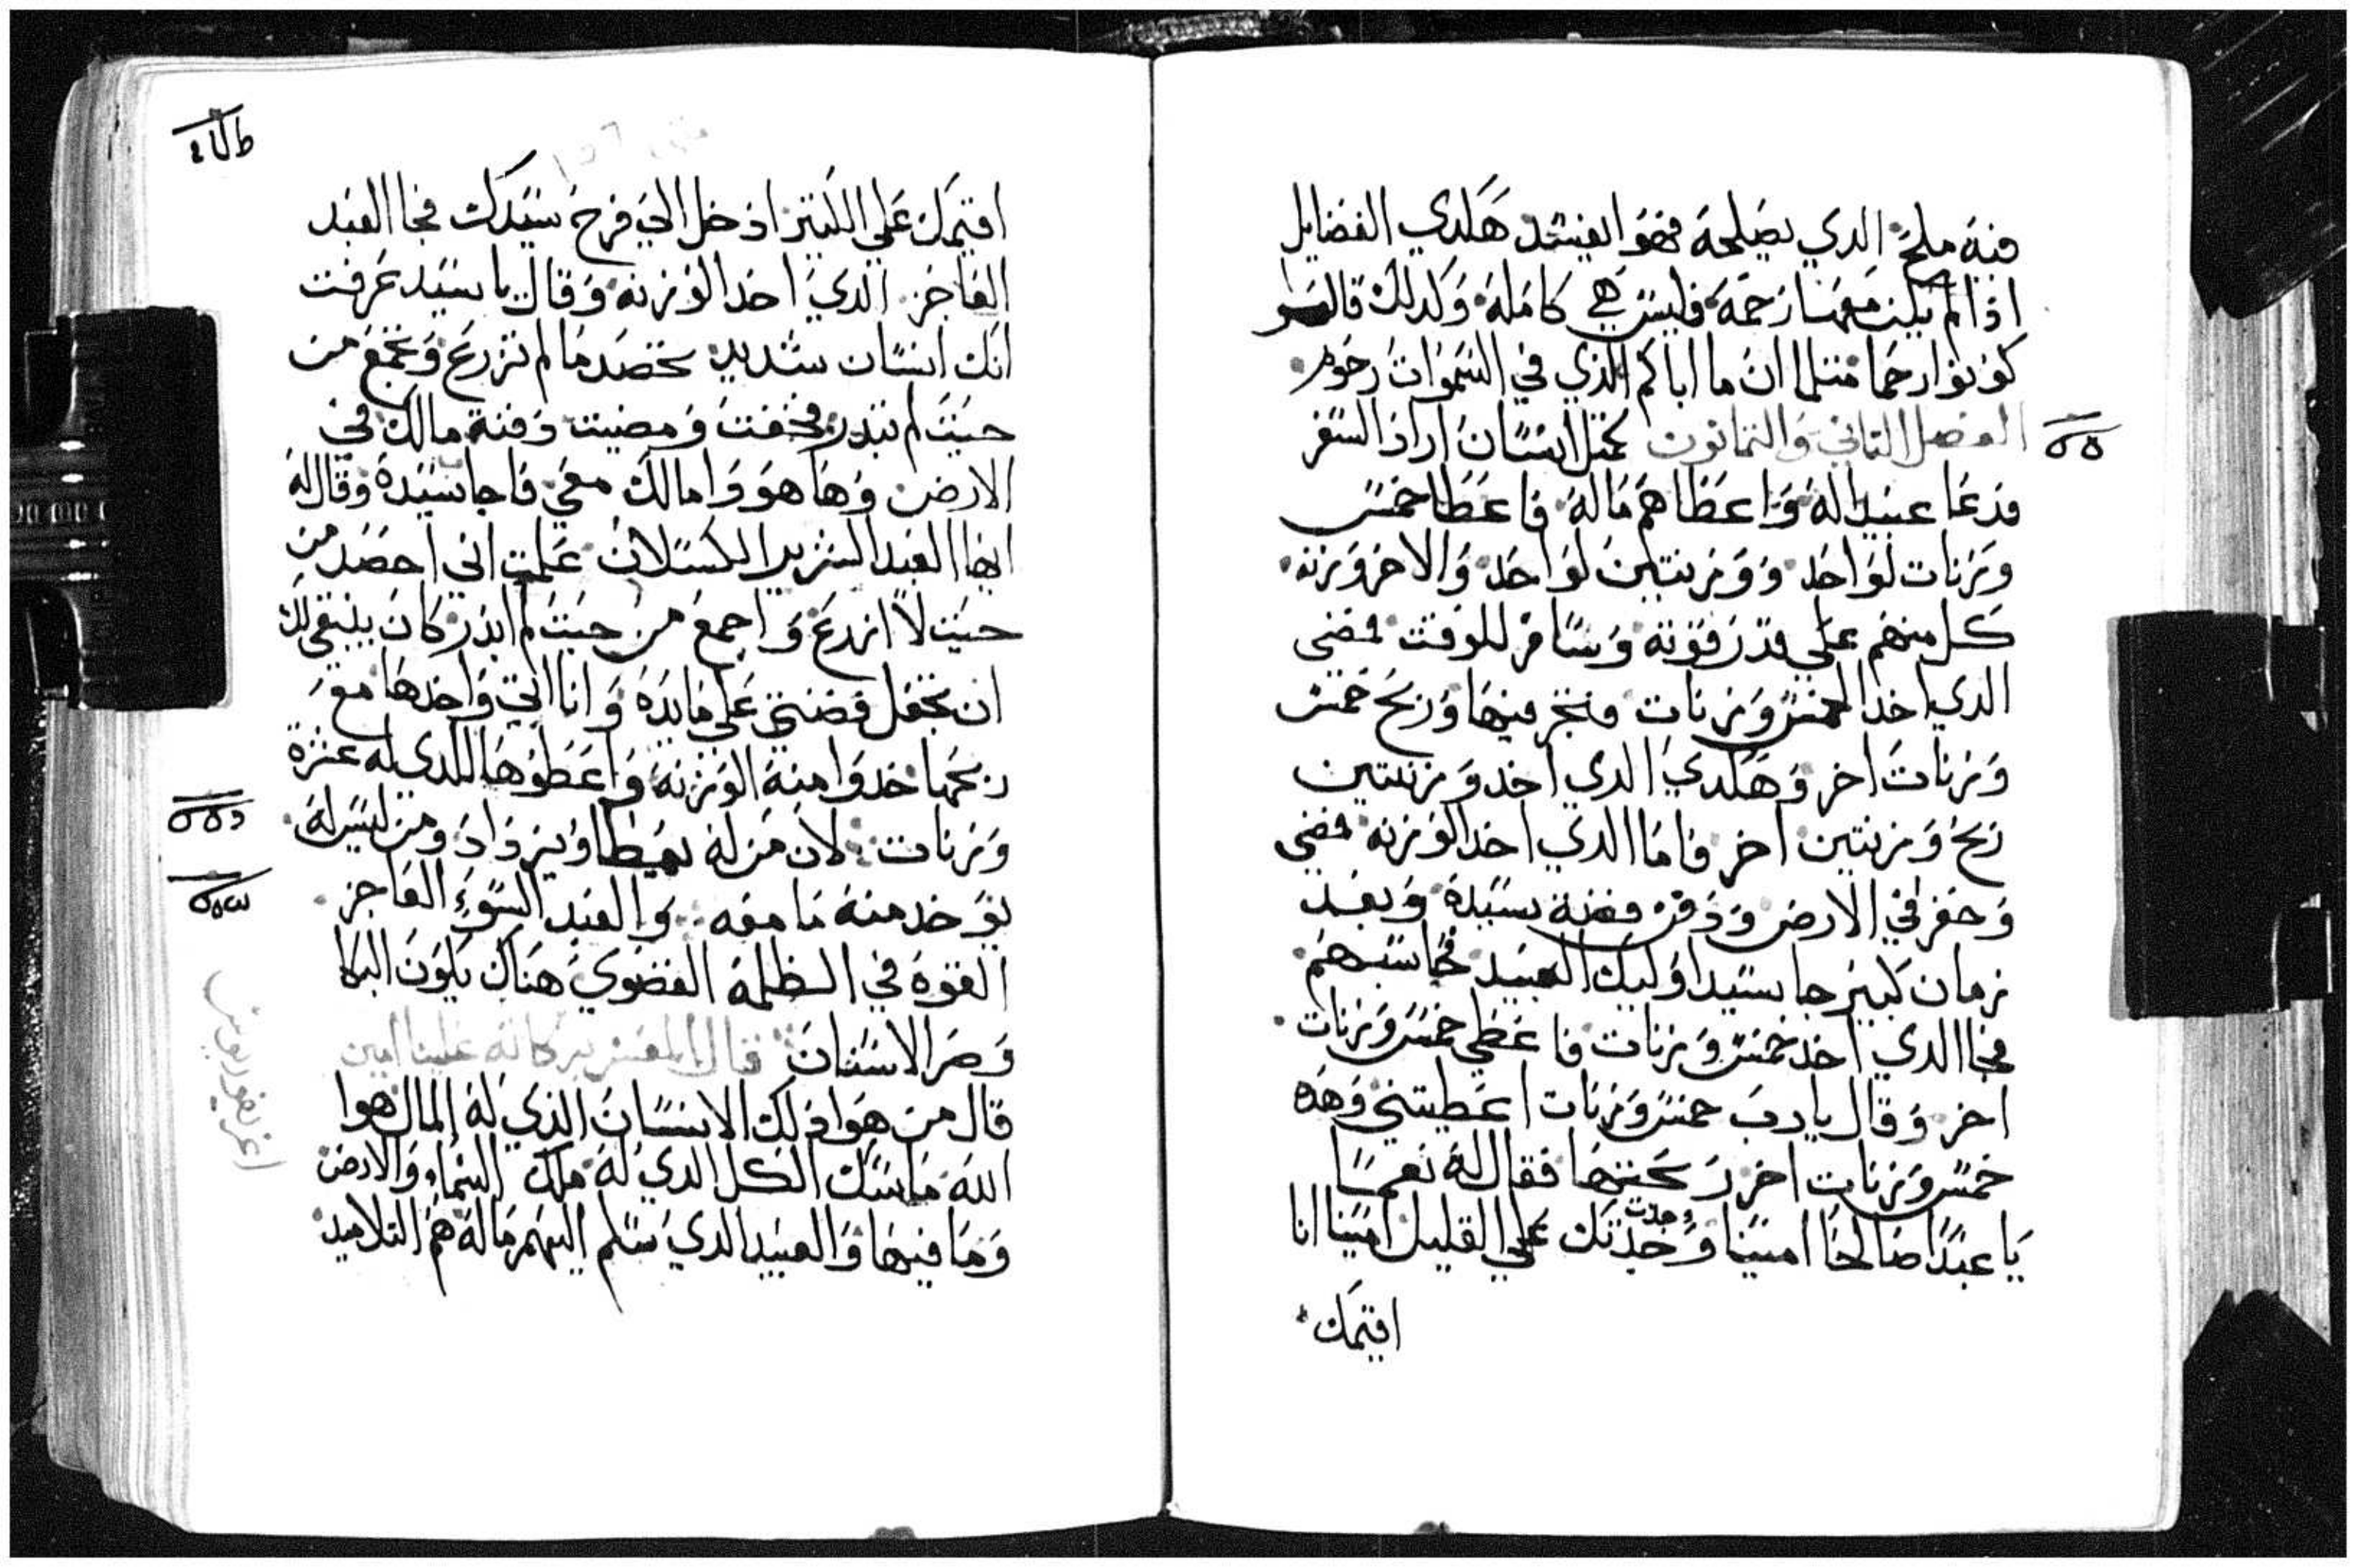 فيه ملح الدي يصلحه فهوا يفسد هكدي الفضايل
اذا لم يكن معها رحمه فليس هي كامله وكدلك قال
كونوا رحما متلما ان اباكم الذي في السموات رحوم
الفصل التاني والتمانون كمتل انسان اراد السفر
فدعا عبيدا له واعطاهم ماله فاعطا خمس
وزنات لواحد ووزنتين لواحد والاخر وزنه
كل منهم علي قدر قوته وسافر للوقت فمضي
الدي اخد الخمس وزنات فتجر فيها وربح خمس
وزنات اخر وهكدي الدي اخد وزنتين
ربح وزنتين اخر فاما الدي اخد الوزنه فمضي
وحفر في الارض ودفن فضة سيده وبعد
زمان كبير جا سيد اوليك العبيد فحاسبهم
فجا الدي اخد خمس وزنات فاعطي خمس وزنات
اخر وقال يا رب خمس وزنات اعطيتني وهده
خمس وزنات اخر ربحتها فقال له نعما
يا عبدا صالحا امينا وجدت وجدتك علي القليل امينا انا
اقيمك
اقيمك علي الكتير ادخل الي فرح سيدك فجا العبد
الفاجر الدي اخد الوزنه وقال يا سيد عرفت
انك انسان شديد تحصد ما لم تزرع وتجمع من
حيت لم تبدر فخفت ومضيت دفنة مالك في
الارض وها هو وا مالك معي فاجا سيده وقال له
ايها العبد الشرير الكسلان علمت اني احصد من
حيت لا ازرع واجمع من حيت لم ابدر كان ينبغي لك
ان تجعل فضتي علي مايده وانا اتي واخدها مع
ربحها خدوا منه الوزنه واعطوها للدي له عشرة
وزنات لان من له يعطا ويزداد ومن ليس له
يوخد منه ما معه والعبد السوء الفاجر
القوه في الظلمة القضوي هناك يكون البكا
وصر الاسنان قال المفسر بركاته علينا امين
قال من هوا ذلك الانسان الذي له المال هوا
الله ماسك الكل الدي له ملك السماء والارض
وما فيها والعبيد الدي سلم اليهم ماله هم التلاميد